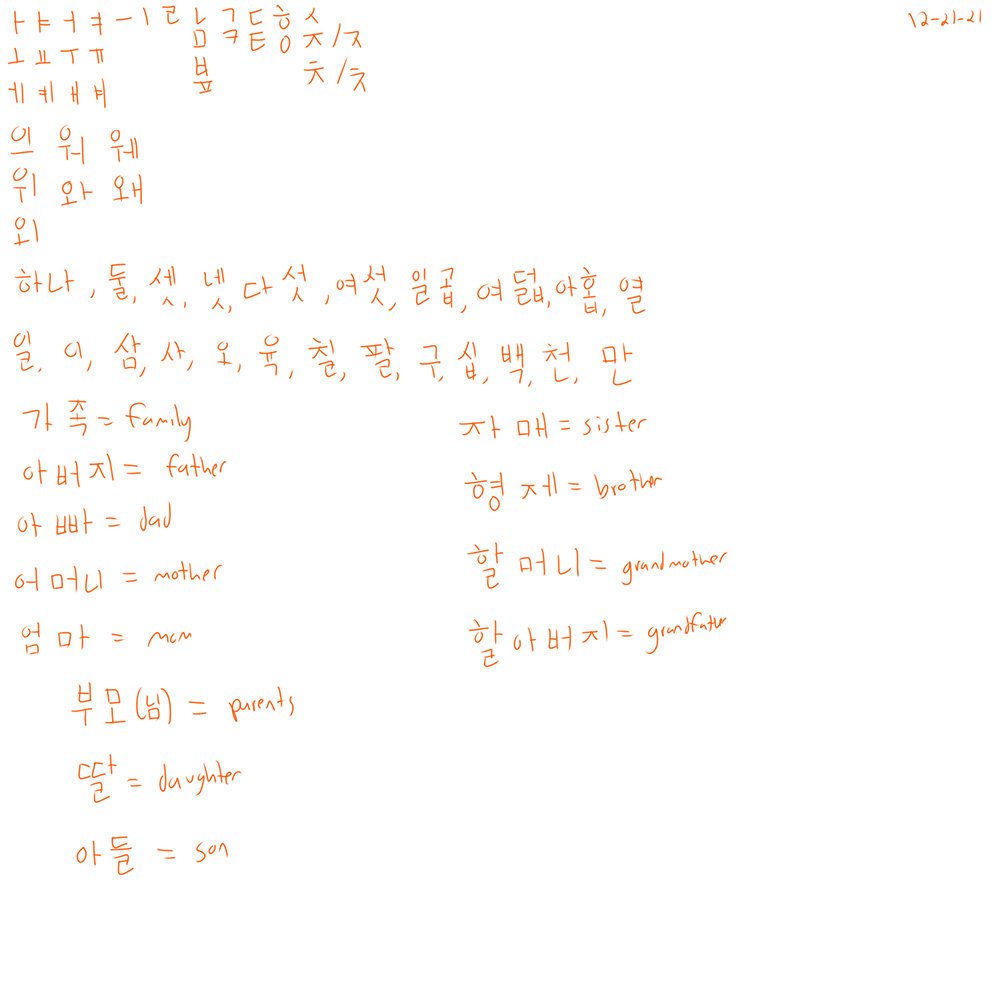 ㅏ ㅑ ㅓ ㅕ ㅡ ㅣ ㄹ ㄴ ㄱ ㄷ ㅎ ㅅ 12-21-21
ㅗ ㅛ ㅜ ㅠ ㅁ ㅋ ㅌ ㅇ ㅈ/ㅈ
ㅔ ㅖ ㅐ ㅒ ㅂ ㅍ ㅊ/ㅊ
의 워 웨
위 와 왜
외
하나, 둘, 셋, 넷, 다섯, 여섯, 일곱, 여덟, 아홉, 열
일, 이, 삼, 사, 오, 육, 칠, 팔, 구, 십, 백, 천, 만
가족 = family
자매 = sister
아버지 = father
형제 = brother
아빠 = dad
어머니 = mother
할머니 = grandmother
엄마 = mom
할아버지 = grandfather
부모(님) = parents
딸 = daughter
아들 = son